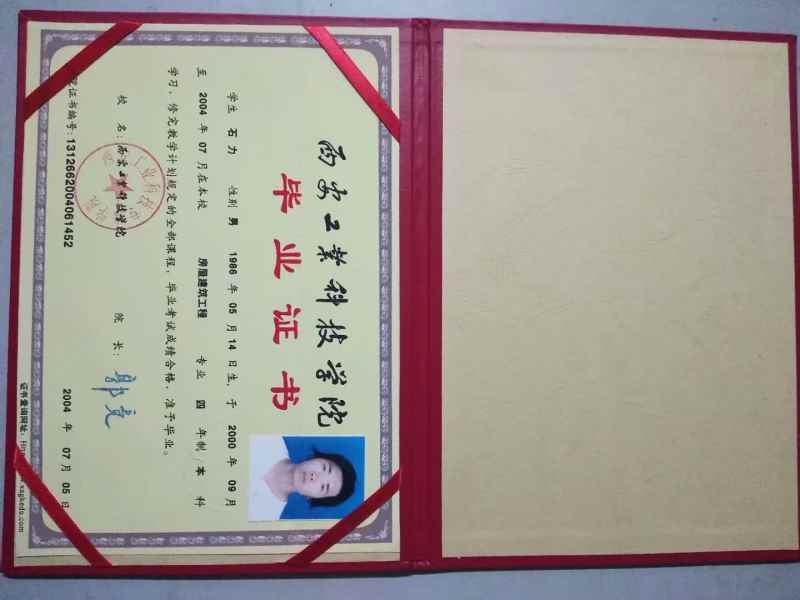 西安工业科技学院
毕业证书
学生 石力 性别 男 1986 年 05 月 14 日生,于 2000 年 09 月
至 2004 年 07 月在本校 房屋建筑工程 专业 四 年制/本 科
学习,修完教学计划规定的全部课程,毕业考试成绩合格,准予毕业。
校 名:西安工业科技学院 院 长:
证书编号:1312662004061452 2004 年 07 月 05 日
证书查询网址: